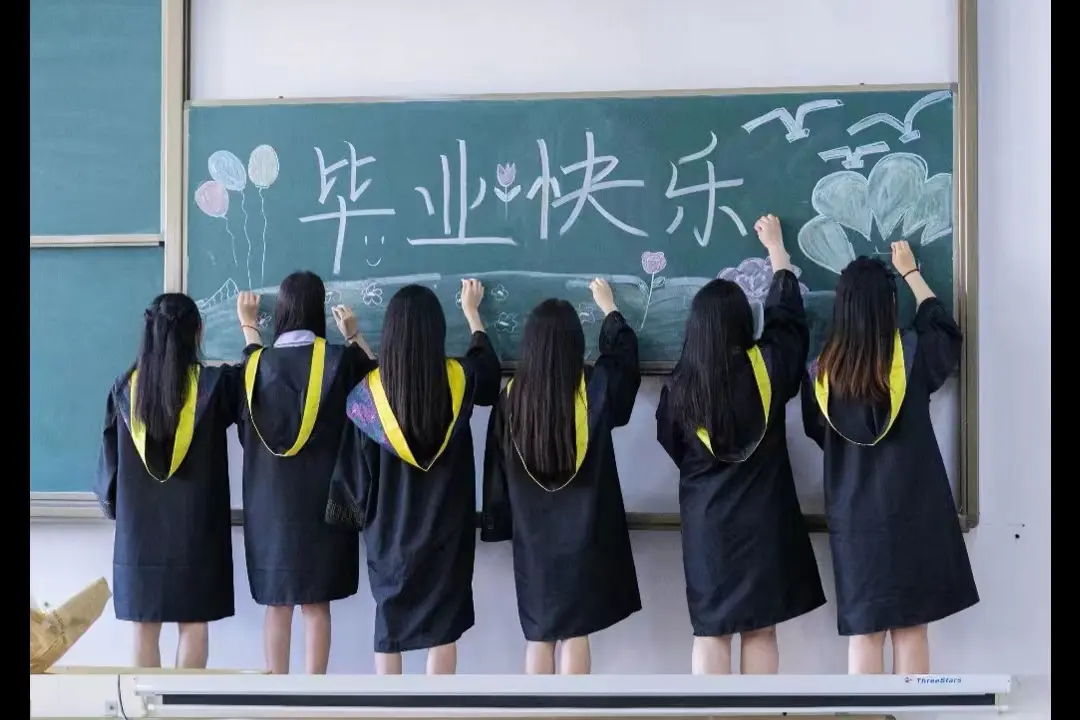 毕业快乐
ThreeStars